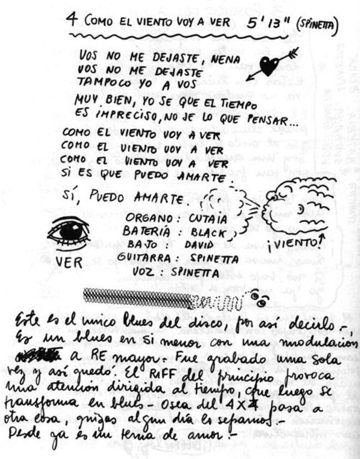 4 COMO EL VIENTO VOY A VER 5'13" (SPINETTA)
VOS NO ME DEJASTE, NENA
VOS NO ME DEJASTE
TAMPOCO YO A VOS
MUY BIEN, YO SE QUE EL TIEMPO
ES IMPRECISO, NO SE LO QUE PENSAR...
COMO EL VIENTO VOY A VER
COMO EL VIENTO VOY A VER
COMO EL VIENTO VOY A VER
SI ES QUE PUEDO AMARTE.
SÍ, PUEDO AMARTE.
ORGANO: CUTAIA
BATERÍA: BLACK
BAJO: DAVID
GUITARRA: SPINETTA
VOZ: SPINETTA
VER
¡VIENTO!
Este es el unico blues del disco, por así decirlo.-
Es un blues en Si menor con una modulacion
a RE mayor.- Fue grabado una sola
vez y así quedó. El RIFF del principio provoca
una atención dirigida al tiempo, que luego se
transforma en blues.- Osea del 4X4 pasa a
otra cosa, quizas algun día lo sepamos.-
Desde ya es un tema de amor.-